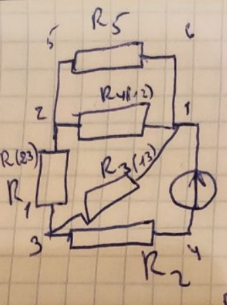 R5
5
6
R4(12)
2
1
R(23)
R3(13)
R1
3
4
R2